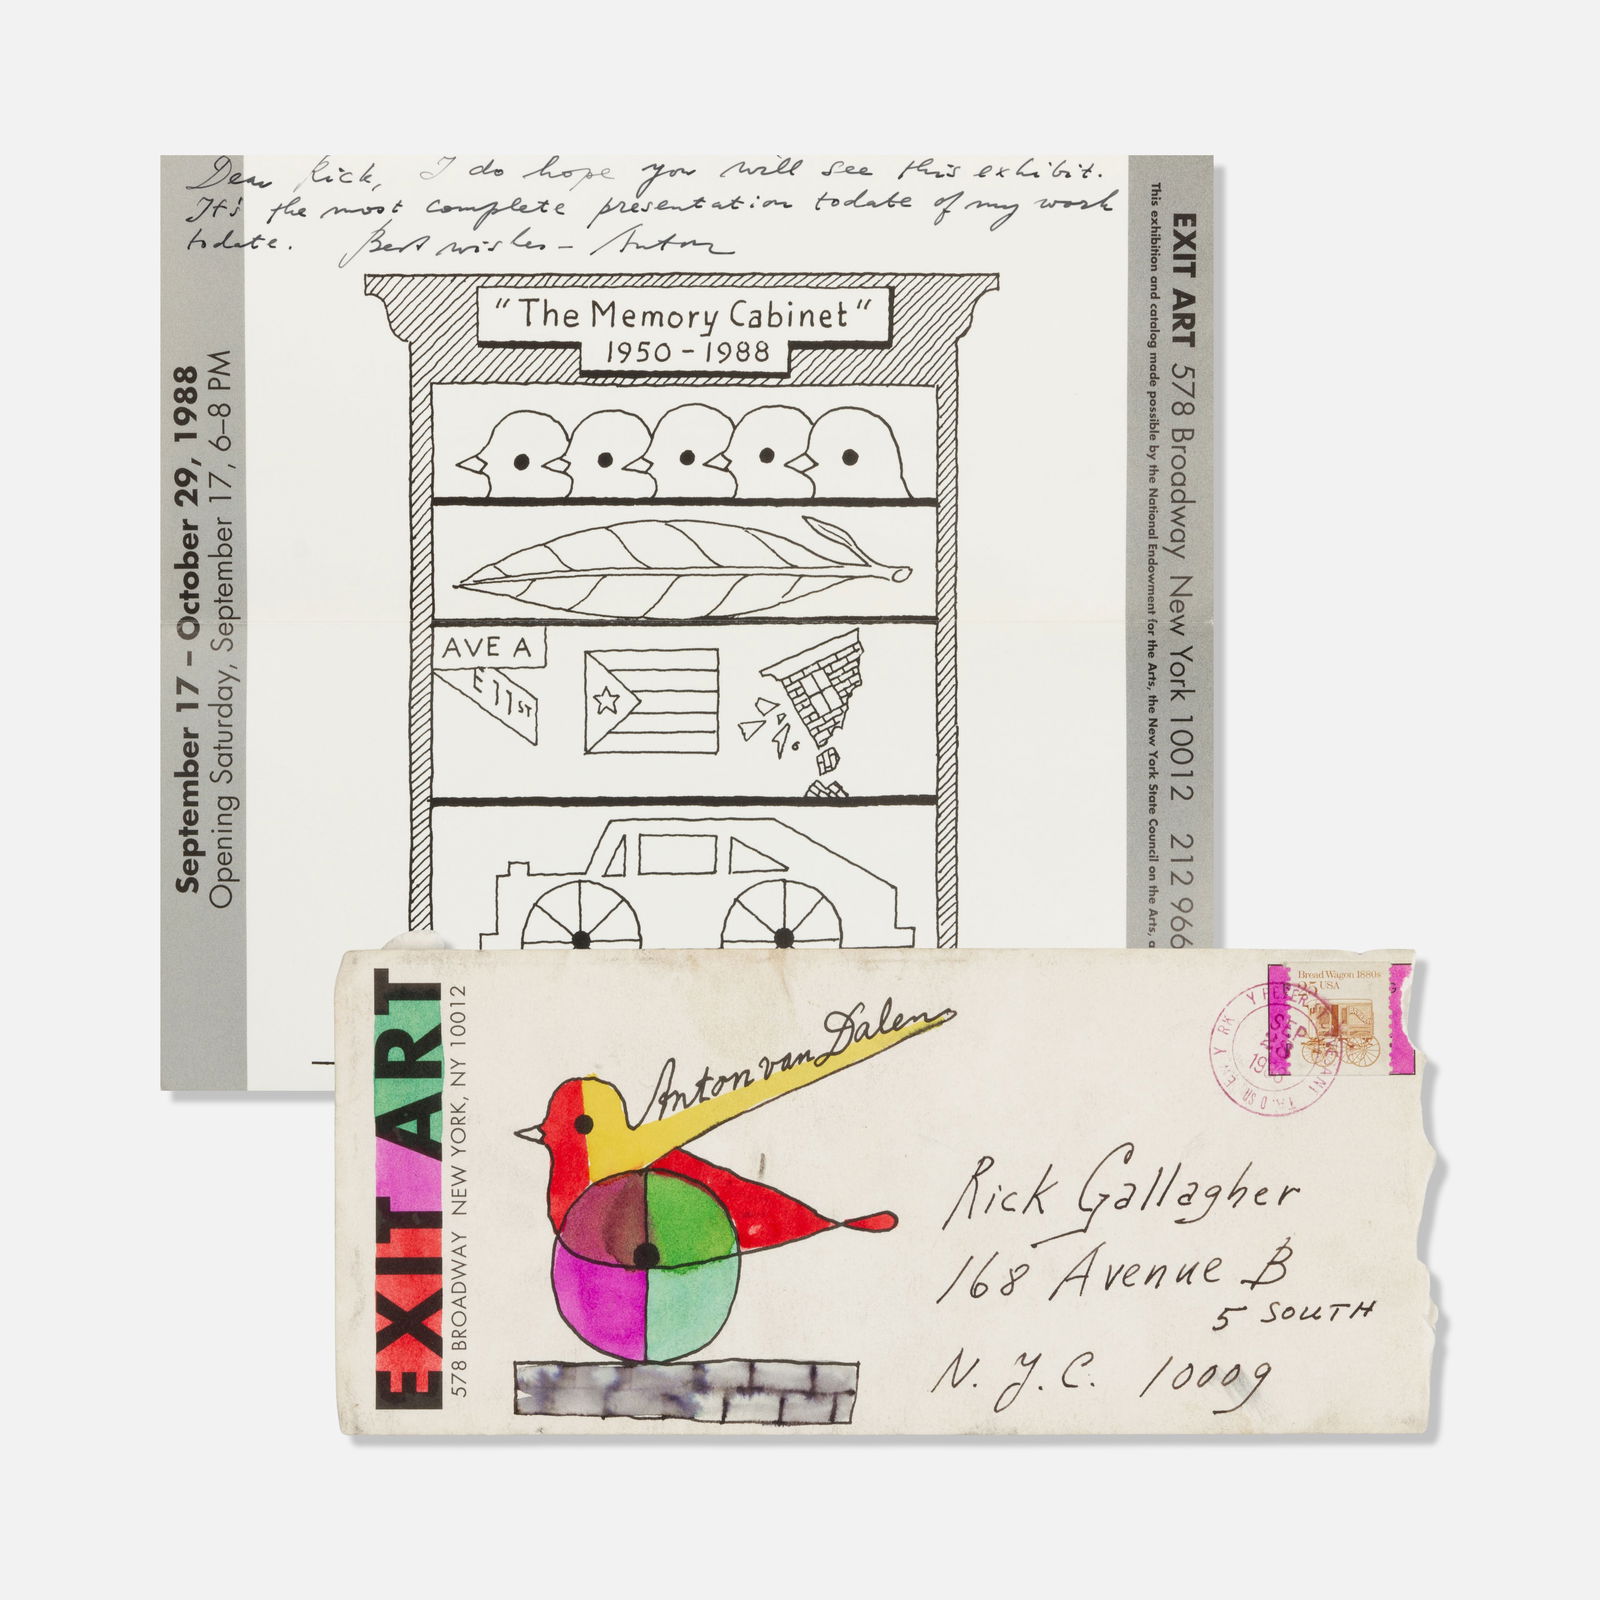 Dear Rick, I do hope you will see this exhibit.
It's the most complete presentation todate of my work
todate. Best wishes – Anton
"The Memory Cabinet"
1950 - 1988
AVE A
E 11 ST
September 17 – October 29, 1988
Opening Saturday, September 17, 6–8 PM
EXIT ART 578 Broadway New York 10012 212 966
This exhibition and catalog made possible by the National Endowment for the Arts, the New York State Council on the Arts, a
EXIT ART
578 BROADWAY NEW YORK, NY 10012
Anton van Dalen
Bread Wagon 1880s
25 USA
SEP
Rick Gallagher
168 Avenue B
5 SOUTH
N.Y.C. 10009